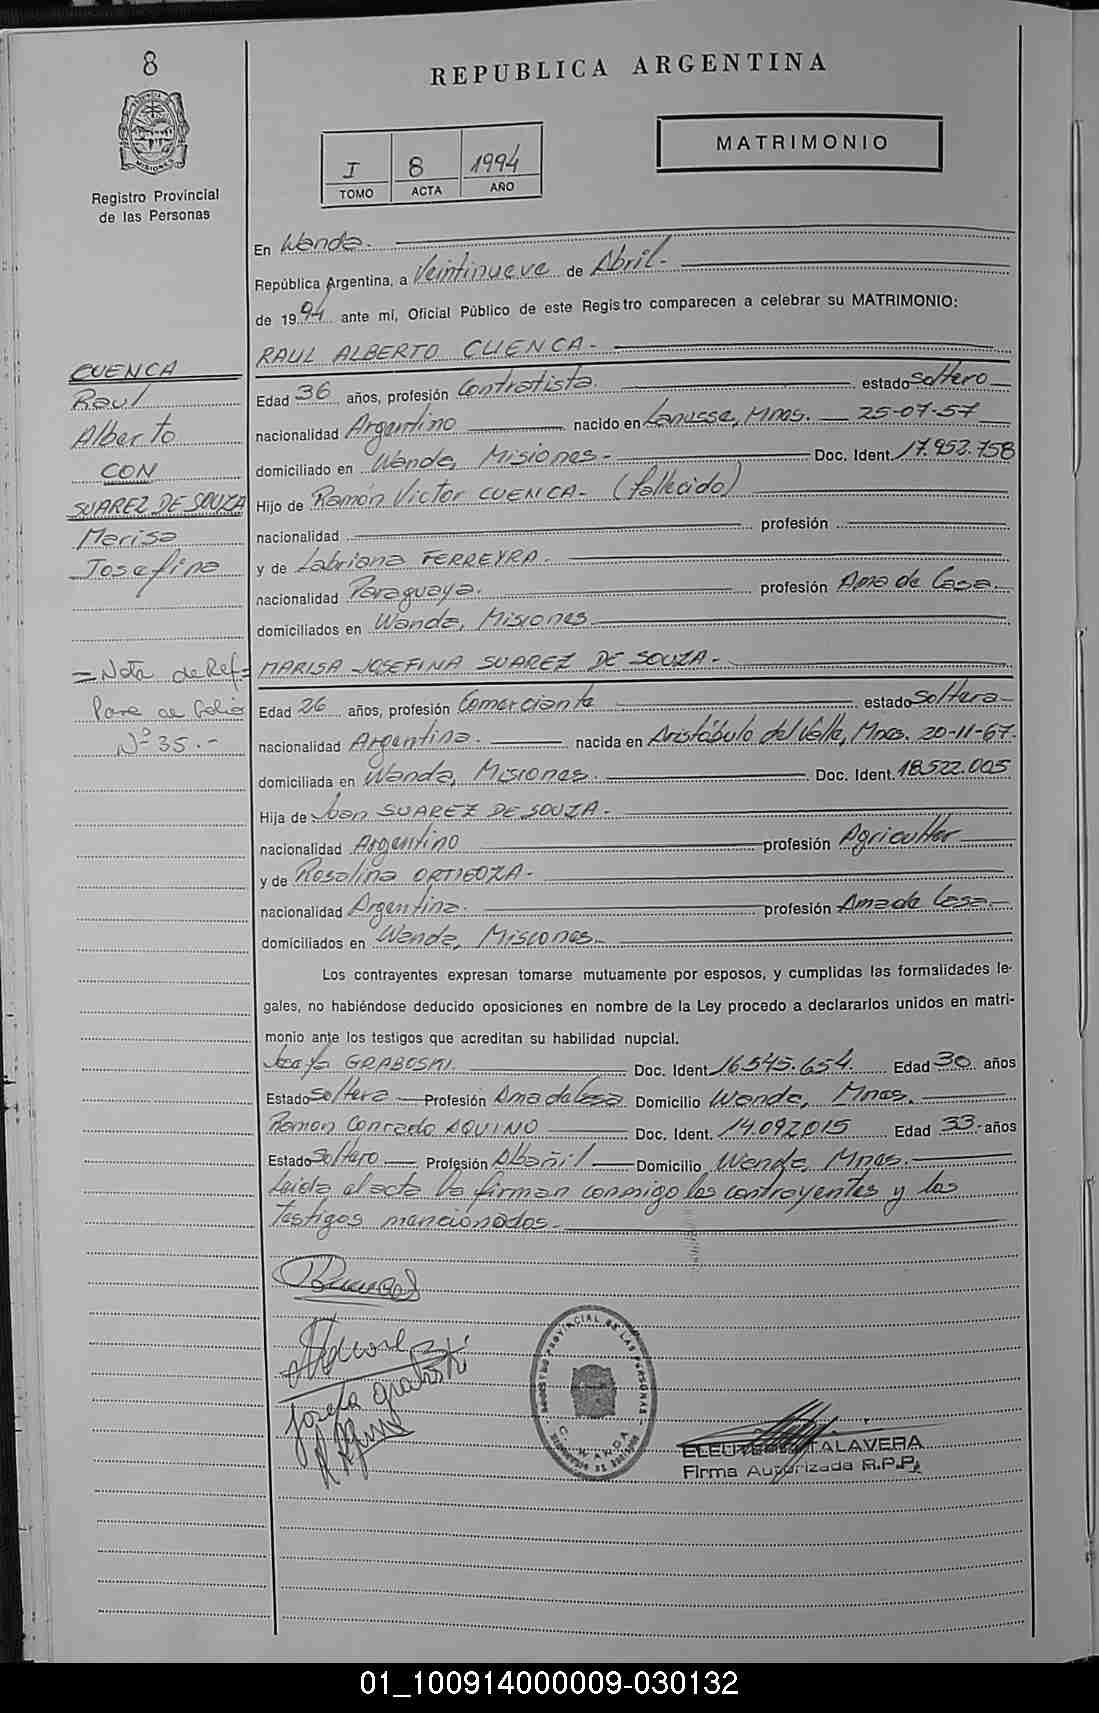 8
REPUBLICA ARGENTINA
MATRIMONIO
I 8 1994
TOMO ACTA AÑO
Registro Provincial
de las Personas
En Wanda.
República Argentina, a Veintinueve de Abril.-
de 1994 ante mí, Oficial Público de este Registro comparecen a celebrar su MATRIMONIO:
RAUL ALBERTO CUENCA.-
CUENCA
Raul
Alberto
CON
SUAREZ DE SOUZA
Marisa
Josefina
Edad 36 años, profesión Contratista. estado Soltero
nacionalidad Argentino nacido en Lanusse, Mnes. 25-07-57
domiciliado en Wanda, Misiones.- Doc. Ident. 17.953.758
Hijo de Ramón Victor CUENCA.- (fallecido)
nacionalidad profesión
y de FERREYRA.-
nacionalidad Paraguaya. profesión Ama de Casa.
domiciliados en Wanda, Misiones
=Nota de Ref=
Pase al folio
Nº 35.-
MARISA JOSEFINA SUAREZ DE SOUZA.-
Edad 26 años, profesión Comerciante estado Soltera-
nacionalidad Argentina. nacida en Aristóbulo del Valle, Mnes. 20-11-67.
domiciliada en Wanda, Misiones. Doc. Ident. 18.522.005
Hija de Juan SUAREZ DE SOUZA.-
nacionalidad Argentino profesión Agricultor
y de Rosalina ORTIGOZA.-
nacionalidad Argentina. profesión Ama de Casa.
domiciliados en Wanda, Misiones.
Los contrayentes expresan tomarse mutuamente por esposos, y cumplidas las formalidades le-
gales, no habiéndose deducido oposiciones en nombre de la Ley procedo a declararlos unidos en matri-
monio ante los testigos que acreditan su habilidad nupcial.
Josefa GRABOSKI. Doc. Ident. 16.545.654. Edad 30 años
Estado Soltera Profesión Ama de Casa Domicilio Wanda, Mnes.
Ramon Conrado AQUINO Doc. Ident. 14.092.015 Edad 33.- años
Estado Soltero Profesión Albañil Domicilio Wanda, Mnes.-
Leida el acta la firman conmigo los contrayentes y los
Testigos mencionados.-
Josefa Graboski
REGISTRO PROVINCIAL DE LAS PERSONAS
WANDA
TALAVERA
Firma Autorizada R.P.P.
01_100914000009-030132